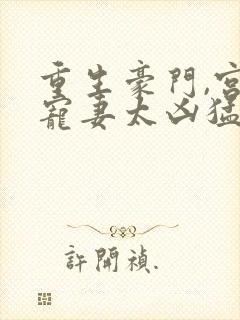 重生豪門,宮
寵妻太凶猛
許開禎.